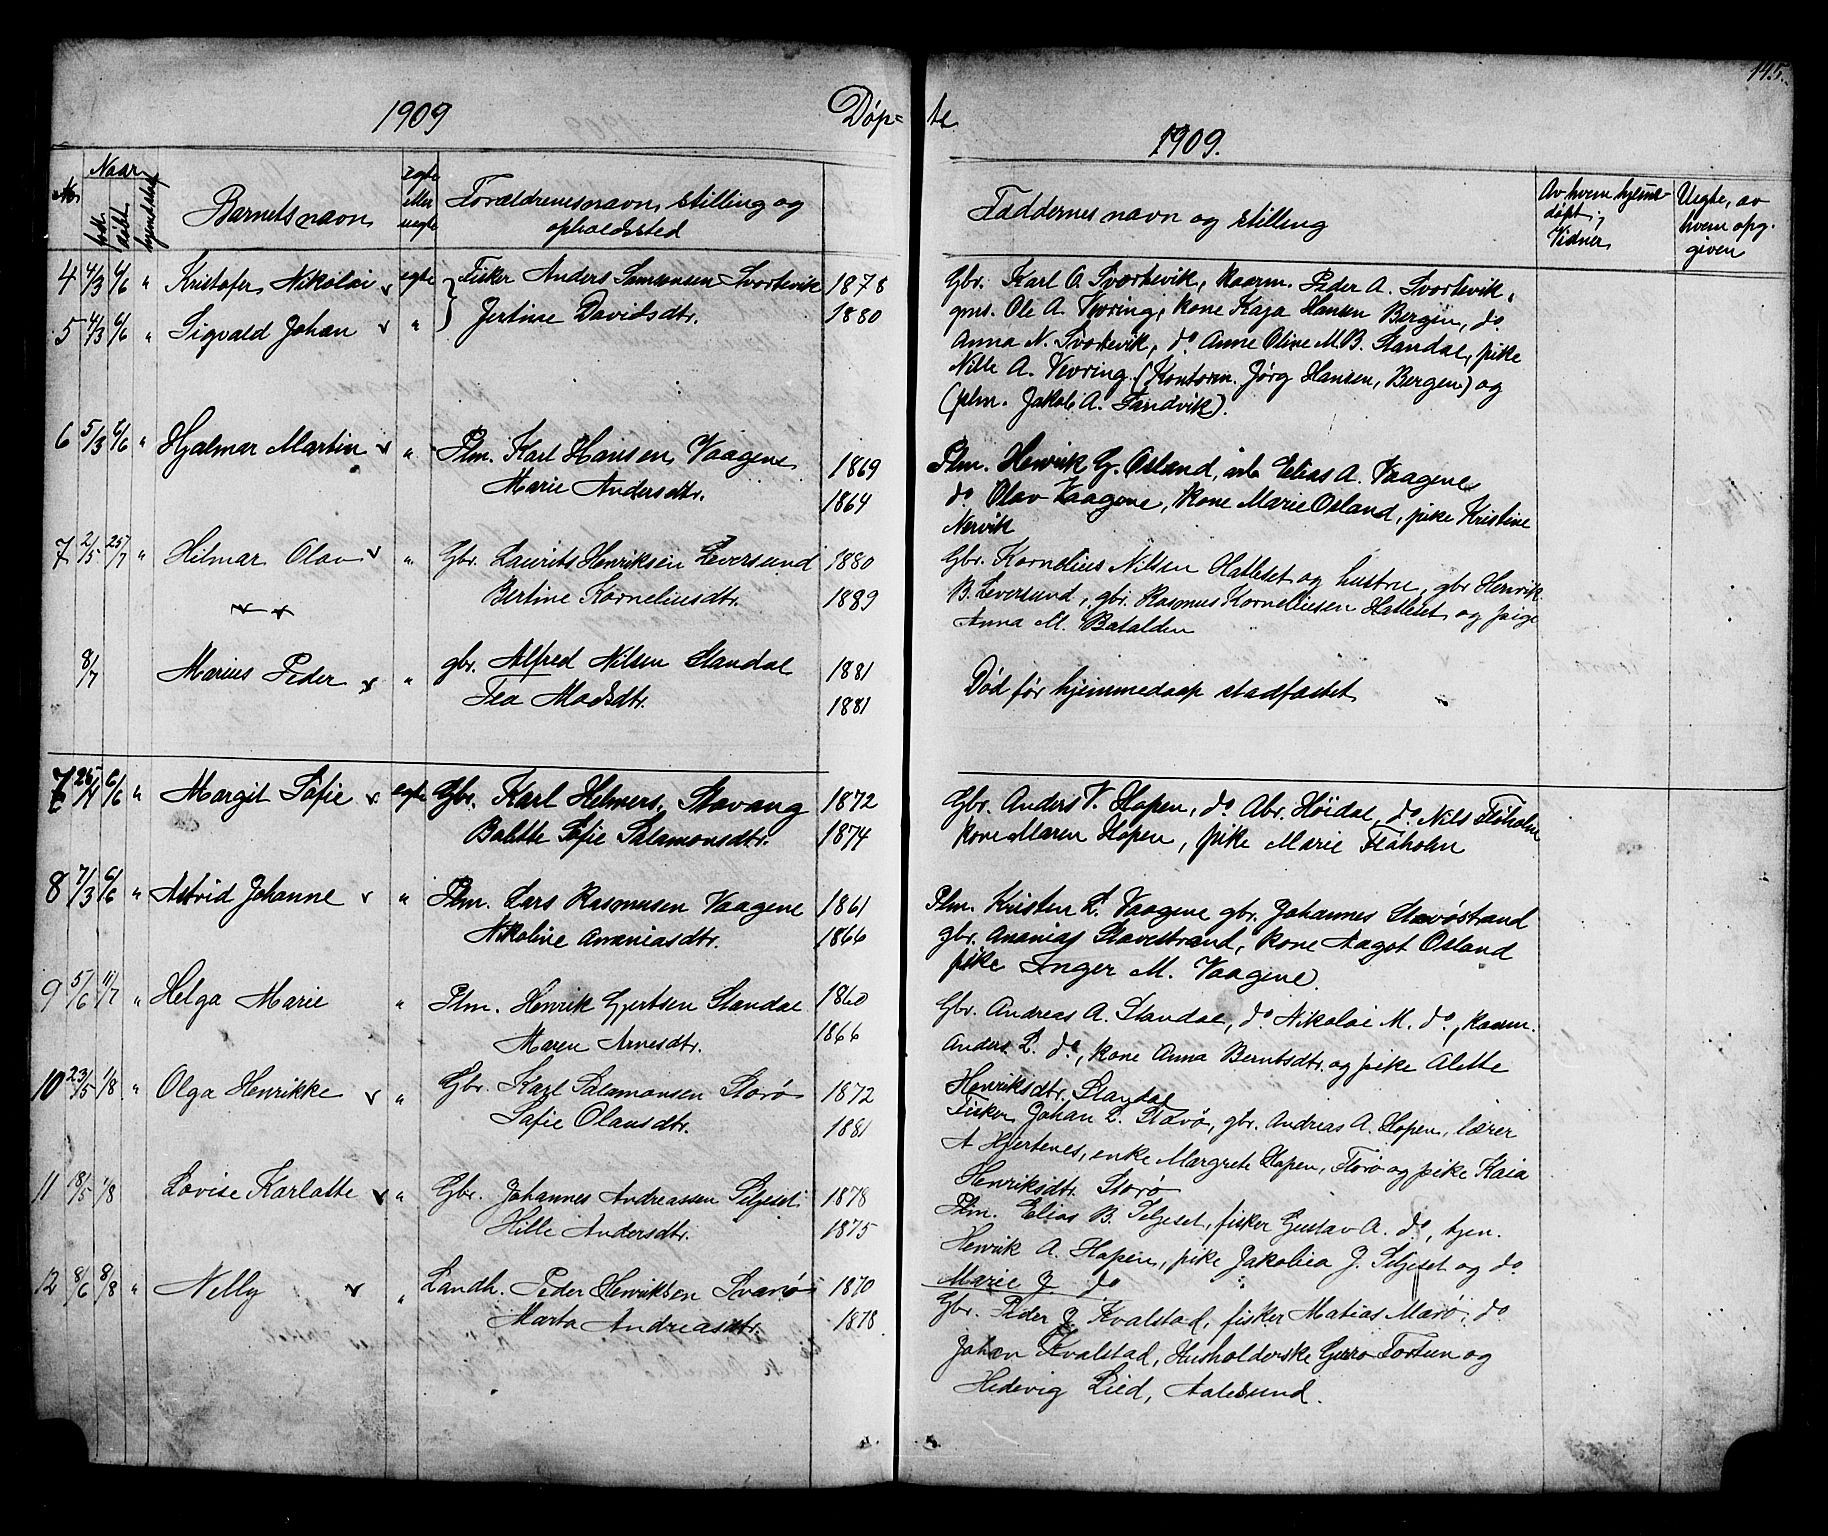 145.
1909 Døp= te 1909.
No. Naar født døbt hjemdøbt Barnets navn egte eller uegte Forældrenes navn, stilling og opholdssted Faddernes navn og stilling Av hvem hjemmedøpt, Vidner Uegte, av hvem opggiven
4 4/3 6/6 " Kristofer Nikolai v egte Fisker Anders Samsonsen Svortevik 1878
5 4/3 6/6 " Sigvald Johan v " Jertine Davidsdtr. 1880
Gbr. Karl O. Svortevik, kaarm. Peder A. Svortevik,
gms. Ole A. Vevring, kone Kaja Hansen Bergen, do
Anna N. Svortevik, do Anne Oline M.B. Standal, pike
Nille A. Vevring. (Kontorm. Jørg Hansen, Bergen) og
(plm. Jakob A. Sandvik).
6 5/3 6/6 " Hjalmar Martin v " Plm. Karl Hansen Vaagene 1869
Marie Andersdtr. 1864
Plm. Henrik G. Osland, arb Elias A. Vaagene
do Olav Vaagene, kone Marie Osland, pike Kristine
Nervik
7 2/5 25/7 " Hilmar Olav v " Gbr. Laurits Henriksen Leversund 1880
Bertine Korneliusdtr. 1889
Gbr. Kornelius Nilsen Hatleset og hustru, gbr Henrik
B. Leversund, gbr. Rasmus Korneliusen Hatleset og pige
Anna M. Batalden
8/7 Marius Peder v " gbr. Alfred Nilsen Standal 1881
Tea Madsdtr. 1881
Død før hjemmedaap stadfæstet
7 25/4 6/6 " Margit Sofie v egte Gbr. Karl Helmers. Stavang 1872
Bolette Sofie Salamonsdtr. 1874
Gbr. Anders V. Hopen, do Abr. Høidal, do Nils Fløholm
kone Maren Hopen, pike Marie Fløholm
8 7/3 6/6 " Astrid Johanne v " Plm. Lars Rasmusen Vaagene 1861
Nikoline Ananiasdtr. 1866
Plm. Kristen L. Vaagene gbr. Johannes Stavøstrand
gbr. Ananias Stavestrand, kone Aagot Osland
pike Inger M. Vaagene.
9 5/6 11/7 " Helga Marie " Plm. Henrik Gjertsen Standal 1860
Maren Arnesdtr. 1866
Gbr. Andreas A. Standal, do Nikolai M. do, kaarm.
Anders L. do, kone Anna Berntsdtr. og pike Alette
Henriksdtr. Standal
10 23/5 1/8 " Olga Henrikke v " Gbr. Karl Salamonsen Storø 1872
Sofie Olausdtr. 1881
Fisker Johan L. Stavø, gbr. Andreas A. Hopen, lærer
A Hjertenes, enke Margrete Hopen, Florø og pike Kaia
Henriksdtr. Storø
11 18/5 1/8 Lovise Karlotte v " Gbr. Johannes Andreassen Seljeset 1878
Hille Andersdtr. 1875
Plm. Elias B. Seljeset, fisker Gustav A. do, tjen.
Henrik A. Hopen, pike Jakobea J. Seljeset og do
Marie J. do
12 8/6 8/8 " Nelly v " Landh. Peder Henriksen Svanø 1870
Marta Andreasdtr. 1878
Gbr. Peder J. Kvalstad, fisker Matias Marø, do
Johan Kvalstad, Husholderske Guro Fortun og
Hedevig Lied, Aalesund.